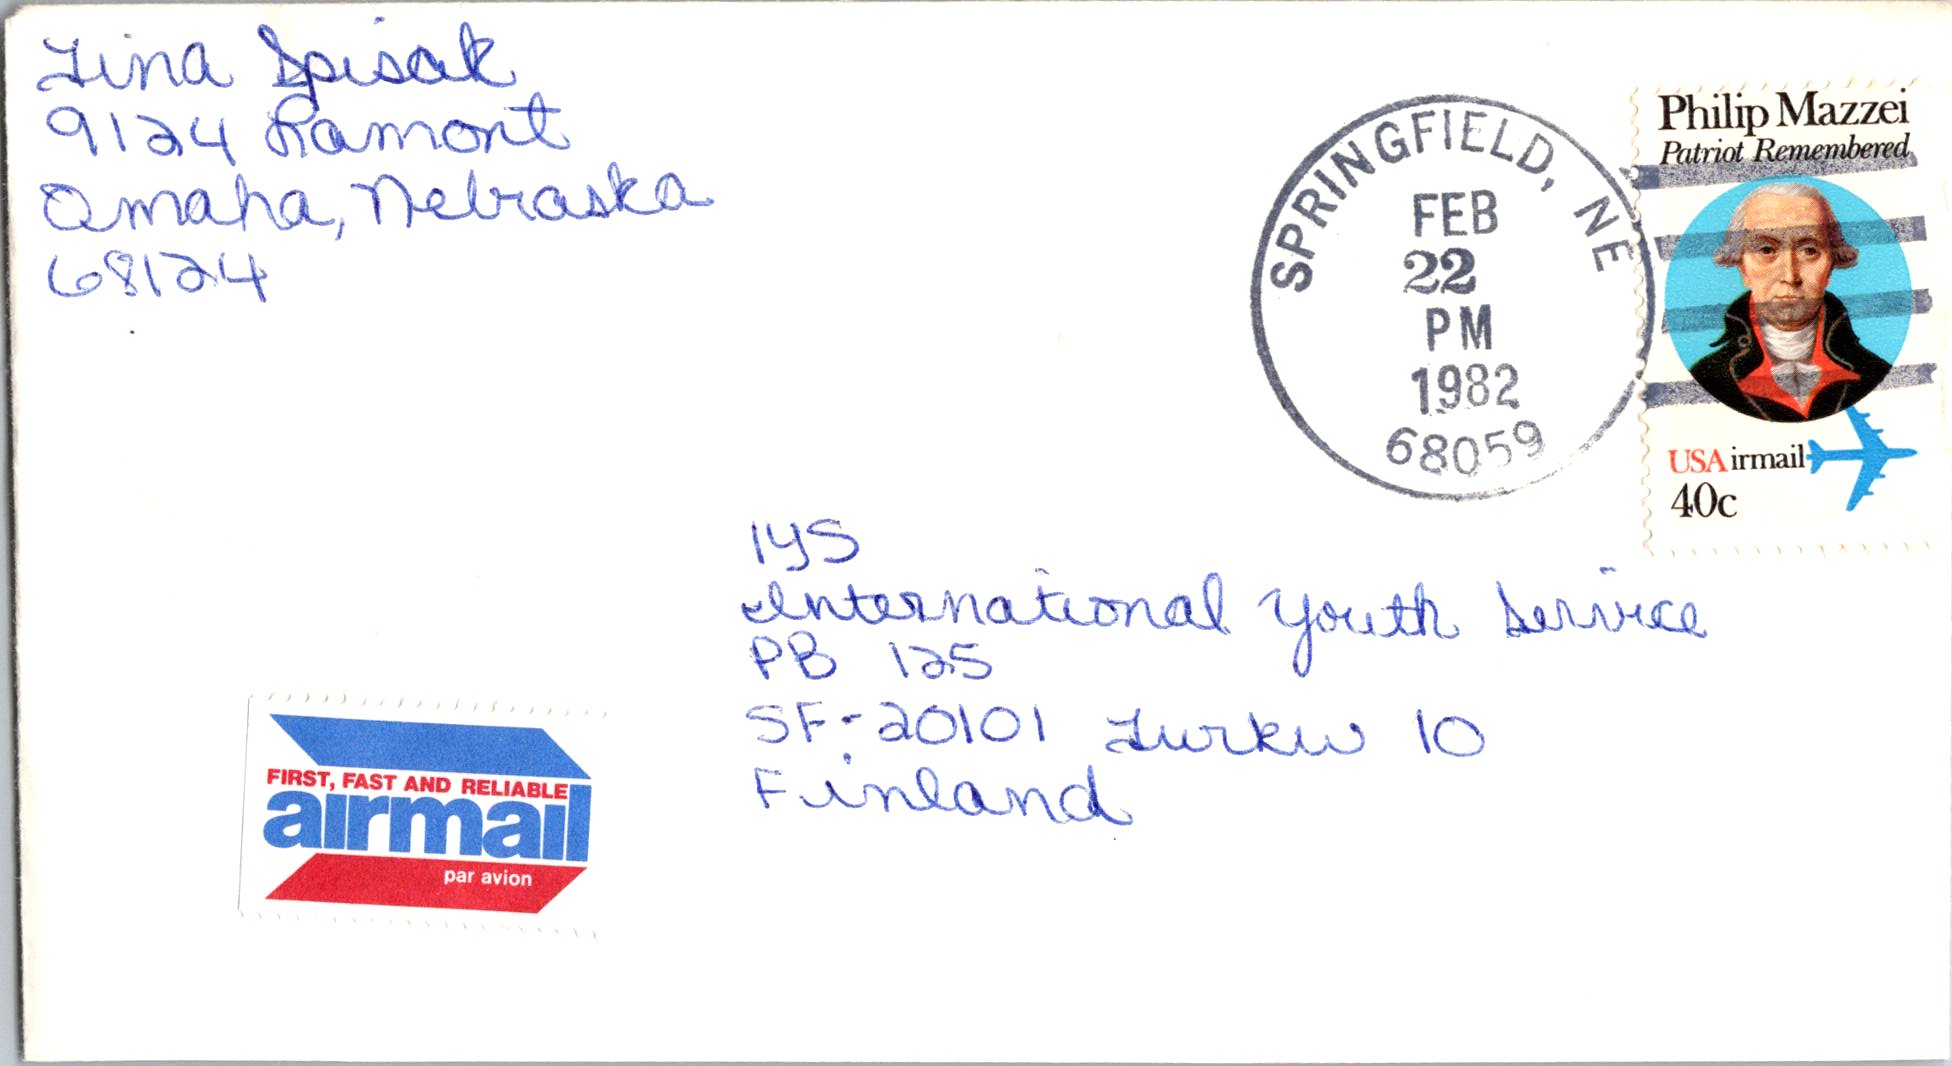 Tina Spisak
9124 Lamont
Omaha, Nebraska
68124
SPRINGFIELD, NE
FEB
22
PM
1982
68059
Philip Mazzei
Patriot Remembered
USAirmail
40c
IYS
International Youth Service
PB 125
SF-20101 Turku 10
Finland
FIRST, FAST AND RELIABLE
airmail
par avion